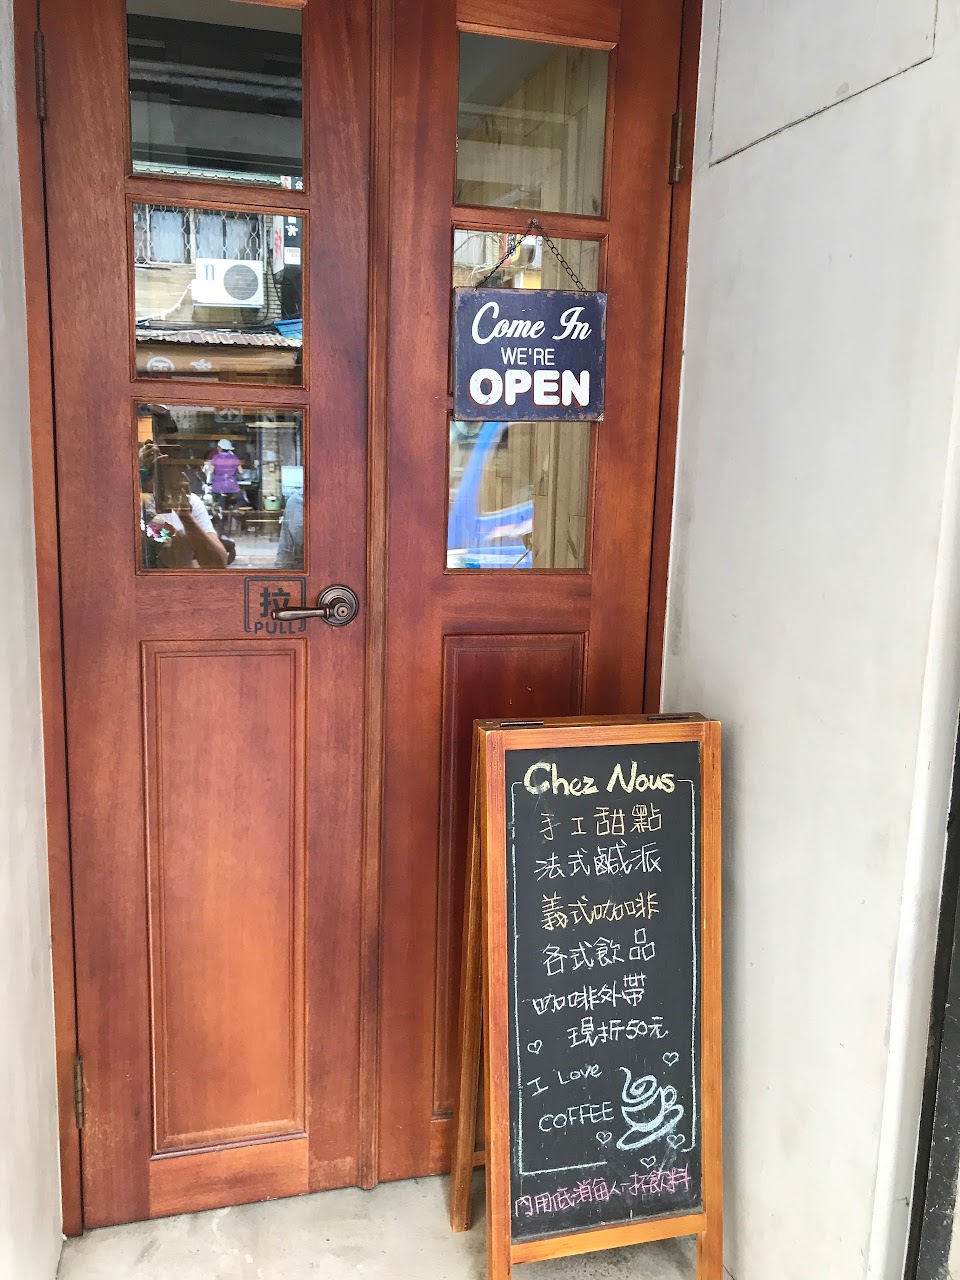 Come In
WE'RE
OPEN
拉
PULL
Chez Nous
手工甜點
法式鹹派
義式咖啡
各式飲品
咖啡外帶
現折50元
I Love
COFFEE
內用低消每人一杯飲料